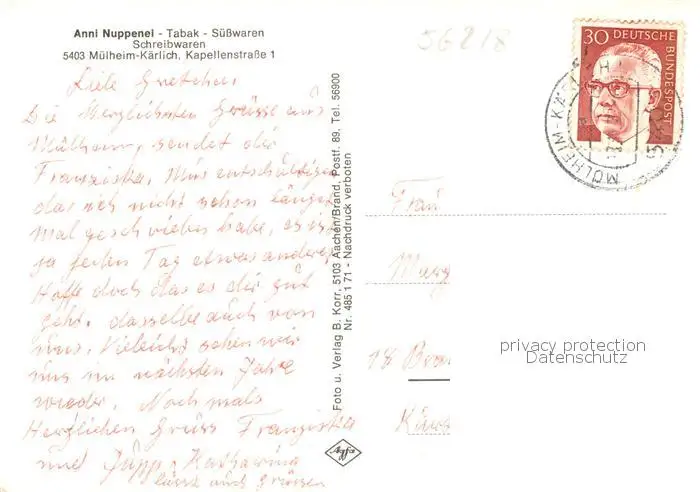 Anni Nuppenei - Tabak - Süßwaren
Schreibwaren
5403 Mülheim-Kärlich, Kapellenstraße 1
56218
30 DEUTSCHE BUNDESPOST
MÜLHEIM-KÄRLICH
Liebe Gretchen,
Die Herzlichsten Grüsse aus
Mülheim, sendet dir
Franziska. Mus entschäldigen
das ich nicht schon länger
mal geschrieben habe, es ist
ja jeden Tag etwas anderes
Hoffe doch das es dir gut
geht, dasselbe auch von
uns. Vieleicht sehen wir
uns im nächsten Jahre
wieder. Noch mals
Herzlichen Grüss Franziska
und Jupp, Katharina
lässt auch Grüssen
Foto u. Verlag B. Korr, 5103 Aachen/Brand, Postf. 89, Tel. 56900
Nr. 485 1 71 - Nachdruck verboten
Agfa
Frau
18
privacy protection
Datenschutz